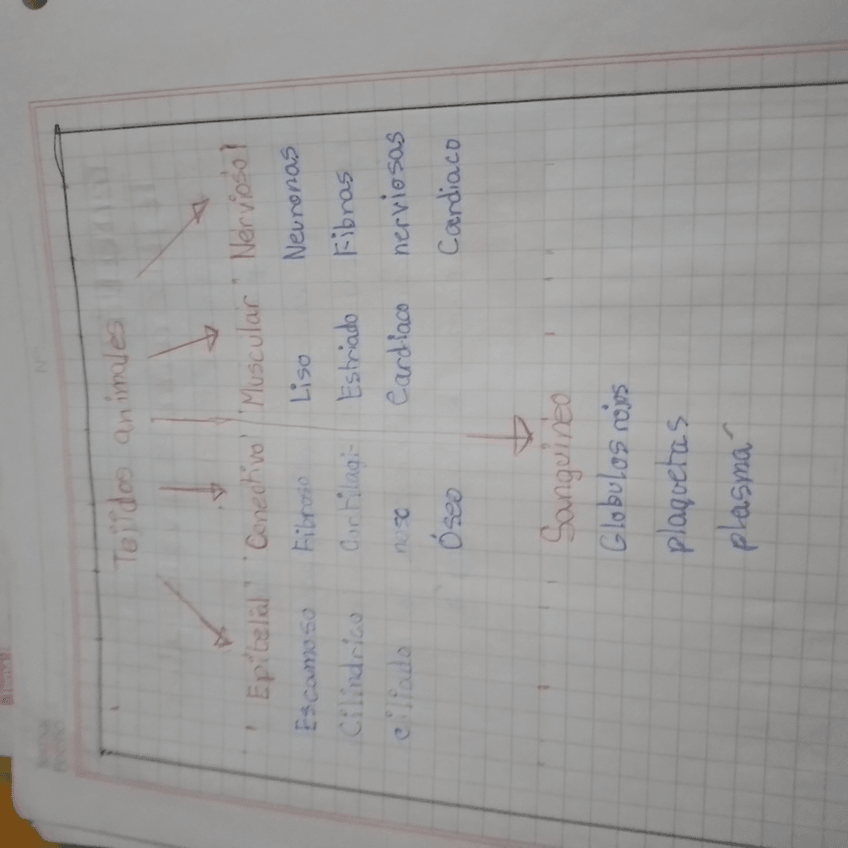 Tejidos animales
"Epitelal" "Conectivo" "Muscular" "Nervioso"
Escamoso Fibroso Liso Neuronas
Cilíndrico Cartilagi- Estriado Fibras
ciliado noso Cardiaco nerviosas
Óseo Cardiaco
Sanguineo
Globulos rojos
plaquetas
plasma